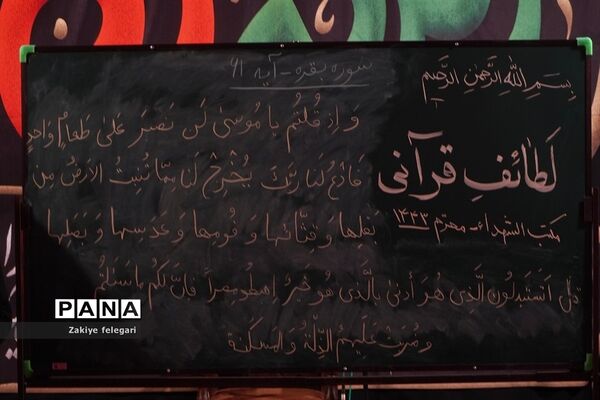 بِسْمِ اللهِ الرَّحْمٰنِ الرَّحِيمِ
لَطائِفِ قرآنی
مکتب الشهداء - محرم ۱۴۴۳
سوره بقره - آیه ۶۱
وَ اِذ قُلتُم يا مُوسىٰ لَن نَصبِرَ عَلىٰ طَعامٍ واحِدٍ
فَادعُ لَنا رَبَّكَ يُخرِج لَنا مِمّا تُنبِتُ الاَرضُ مِن
بَقلِها وَ قِثّائها وَ فُومِها وَ عَدَسِها وَ بَصَلِها
قالَ اَتَستَبدِلُونَ الَّذِي هُوَ اَدنىٰ بِالَّذي هُوَ خَيرٌ اِهبِطُوا مِصراً فَاِنَّ لَكُم ما سَاَلتُم
وَ ضُرِبَت عَلَيهِمُ الذِّلَّةُ وَ المَسكَنة
PANA
Zakiye felegari